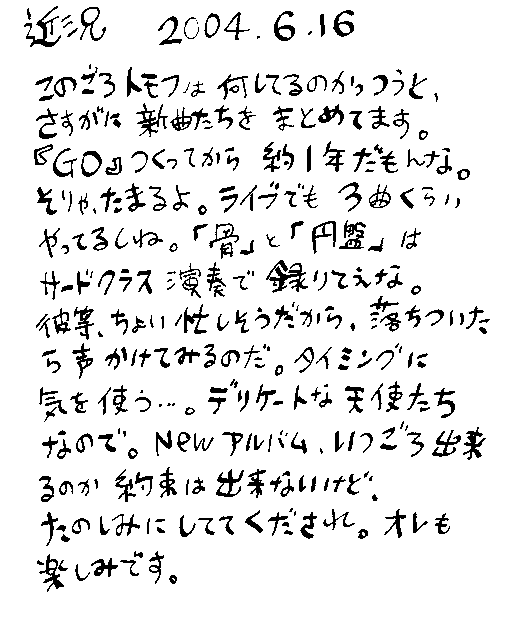 近況 2004.6.16
このごろトモフは何してるのかっつうと、
さすがに新曲たちをまとめてます。
『GO』つくってから約1年だもんな。
そりゃ、たまるよ。ライブでも3曲くらい
やってるしね。「骨」と「円盤」は
サードクラス演奏で録りてえな。
彼等、ちょい忙しそうだから、落ちついた
ら声かけてみるのだ。タイミングに
気を使う…。デリケートな天使たち
なので。Newアルバム、いつごろ出来
るのか約束は出来ないけど、
たのしみにしててくだされ。オレも
楽しみです。